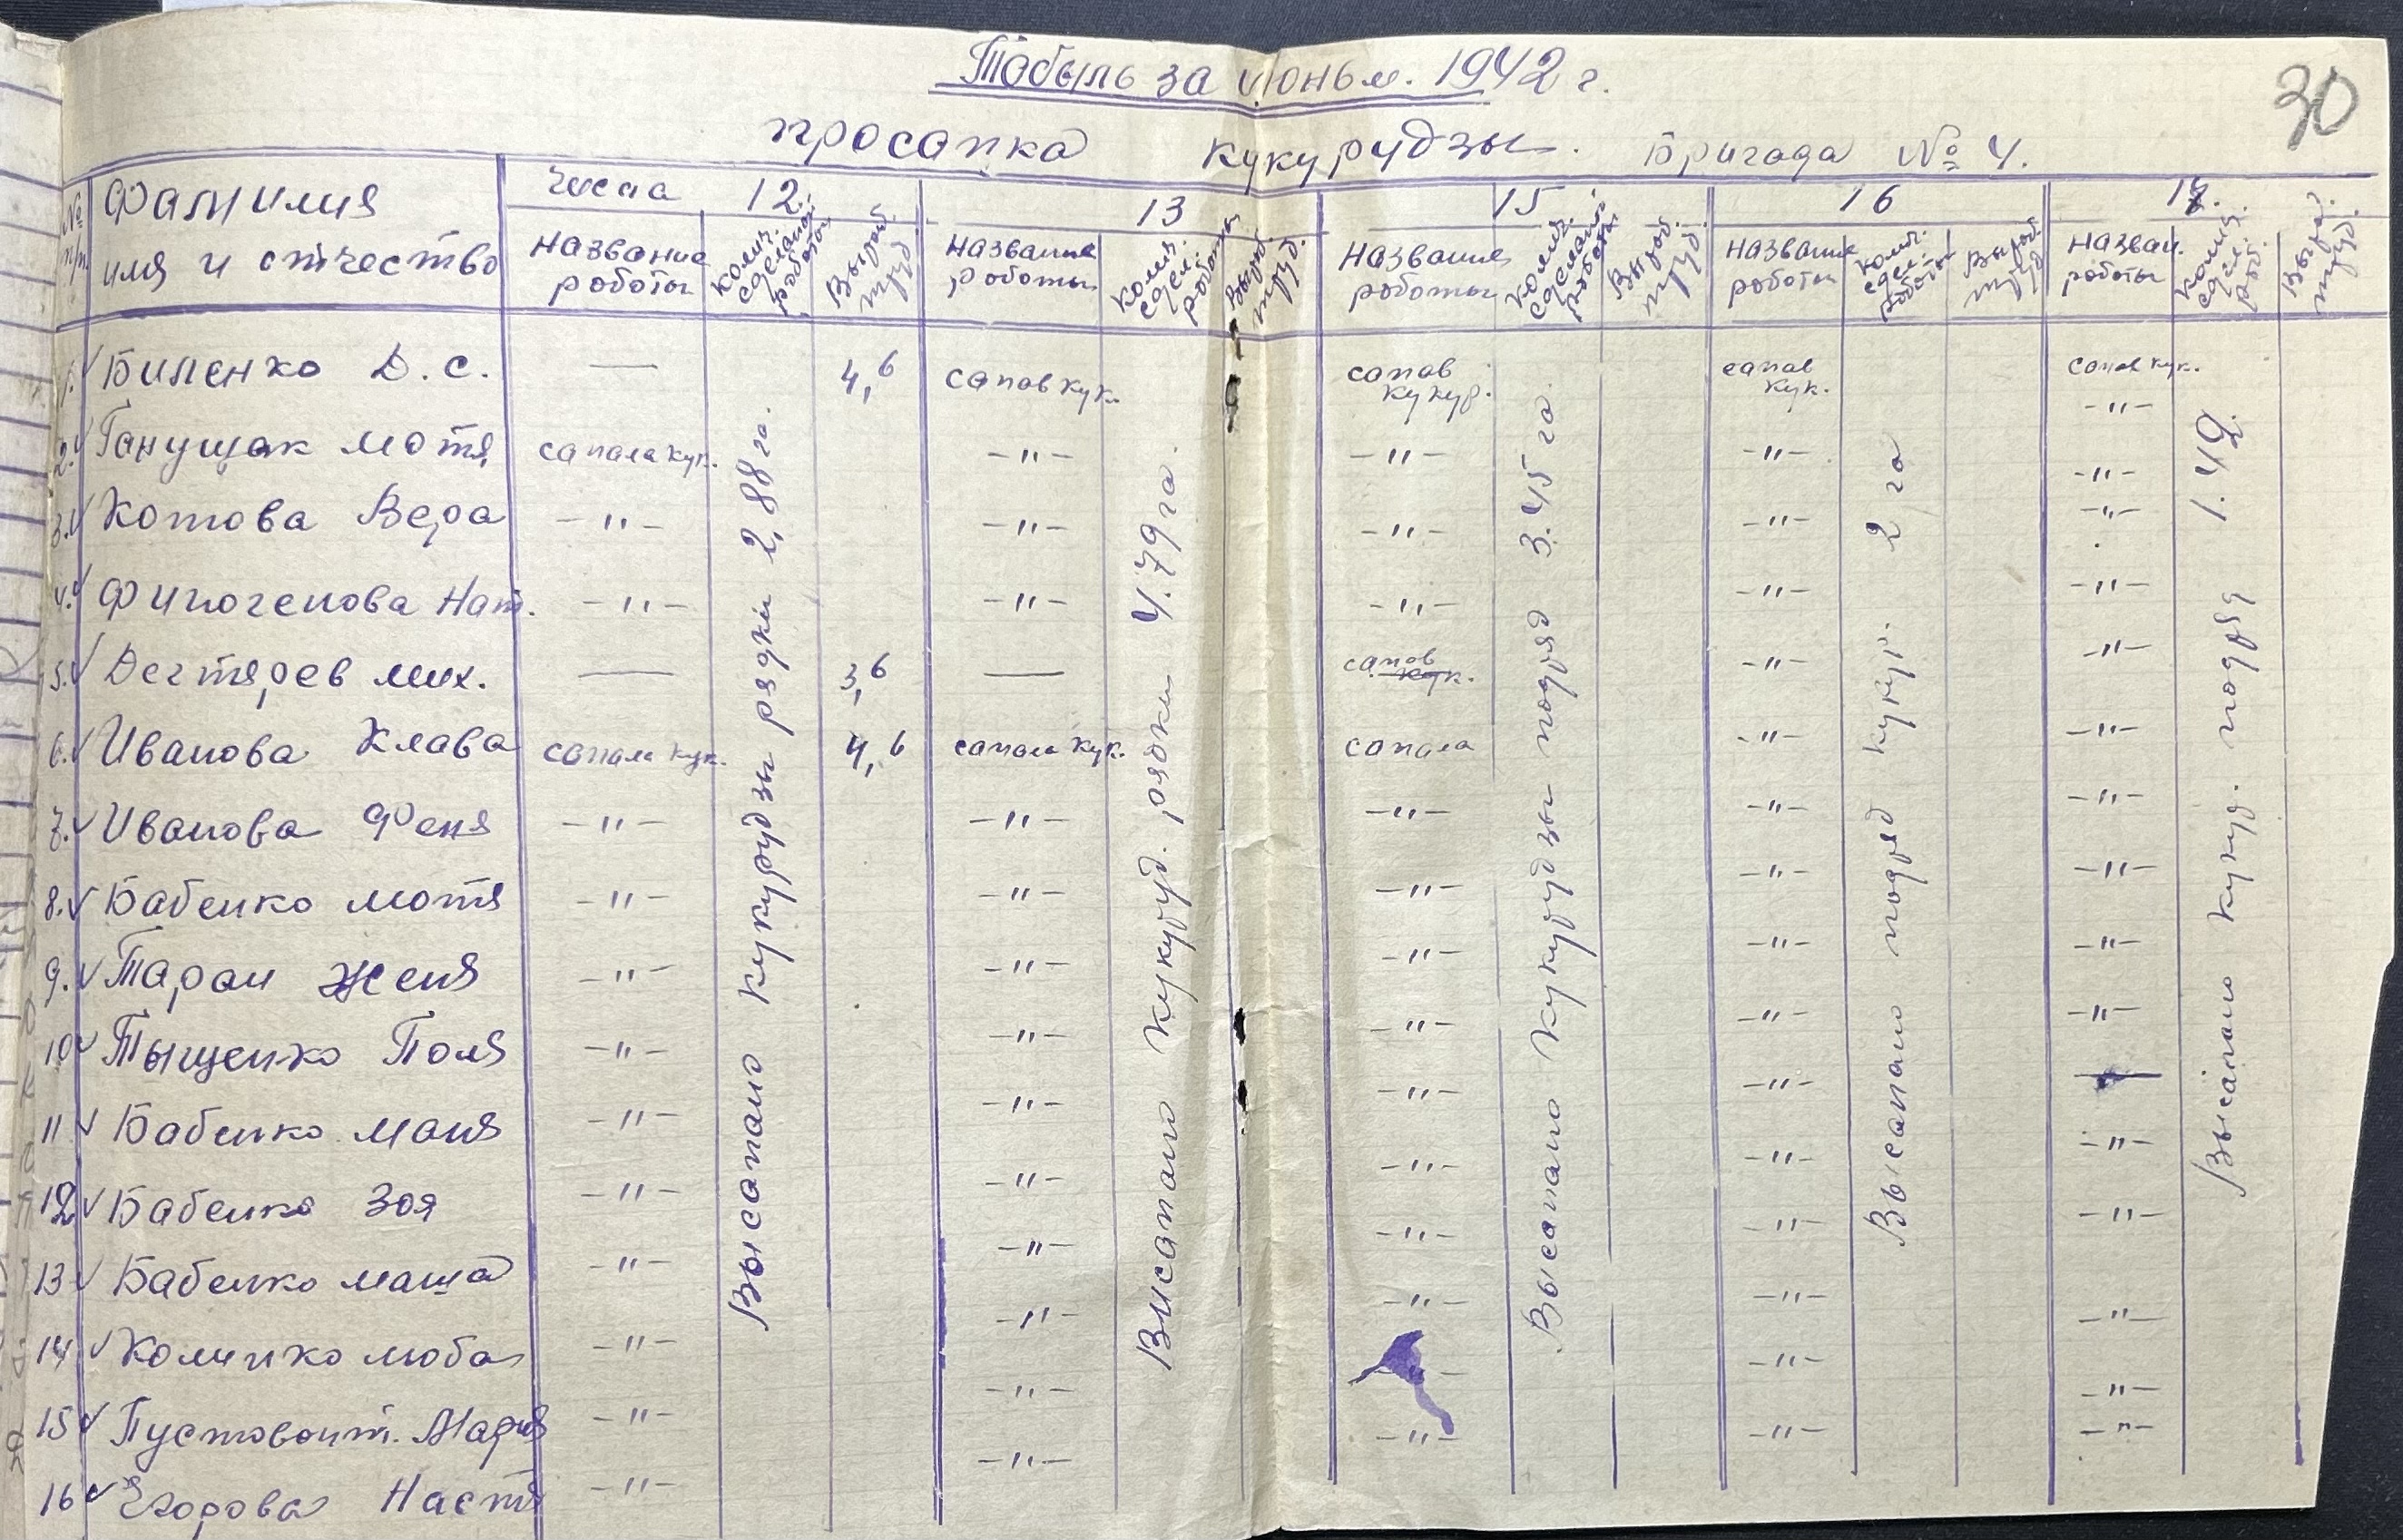 Табыль за июнь м. 1942 г.
30
просапка кукурудзы. Бригада № 4.
№ п/п Фамилия имя и отчество Числа 12. 13 15 16 17.
название роботы колич. сделаной роботы Выраб. труд. название роботы колич. сдел. роботы Выраб. труд. название роботы колич. сделаной роботы Выраб. труд. название роботы колич. сдел. роботы Выраб. труд назван. роботы колич. сдел. роб. Выраб. труд.
1. Биленко Д. С. — 4,6 сапав кук. сапав кукур. сапав кук. сапав кук.
2. Ганущак мотя сапала кук. -"- -"- -"- -"-
3. Котова Вера -"- -"- -"- -"- -"-
-"-
4. Финогенова Нат. -"- -"- -"- -"- -"-
5. Дегтярев мих. — 3,6 — сапав кук. -"- -"-
6. Иванова Клава сапала кук. 4,6 сапала кук. сапала -"- -"-
7. Иванова Феня -"- -"- -"- -"- -"-
8. Бабенко мотя -"- -"- -"- -"- -"-
9. Таран Женя -"- -"- -"- -"- -"-
10 Тыщенко Поля -"- -"- -"- -"- -"-
11 Бабенко маня -"- -"- -"- -"- —
12 Бабенко Зоя -"- -"- -"- -"- -"-
13 Бабенко маша -"- -"- -"- -"- -"-
14 Комичко люба -"- -"- -"- -"- -"-
15 Пустовоит. Мария -"- -"- -"- -"-
16 Егорова Настя -"- -"- -"- -"- -"-
Высапано кукурудзы рядки 2,88 га.
Висапано кукуруд. рядки 4.79 га.
Высапано кукурудзы подряд 3.45 га.
Высапано подряд кукур. 2 га
Высапано кукур. подряд 1.42.